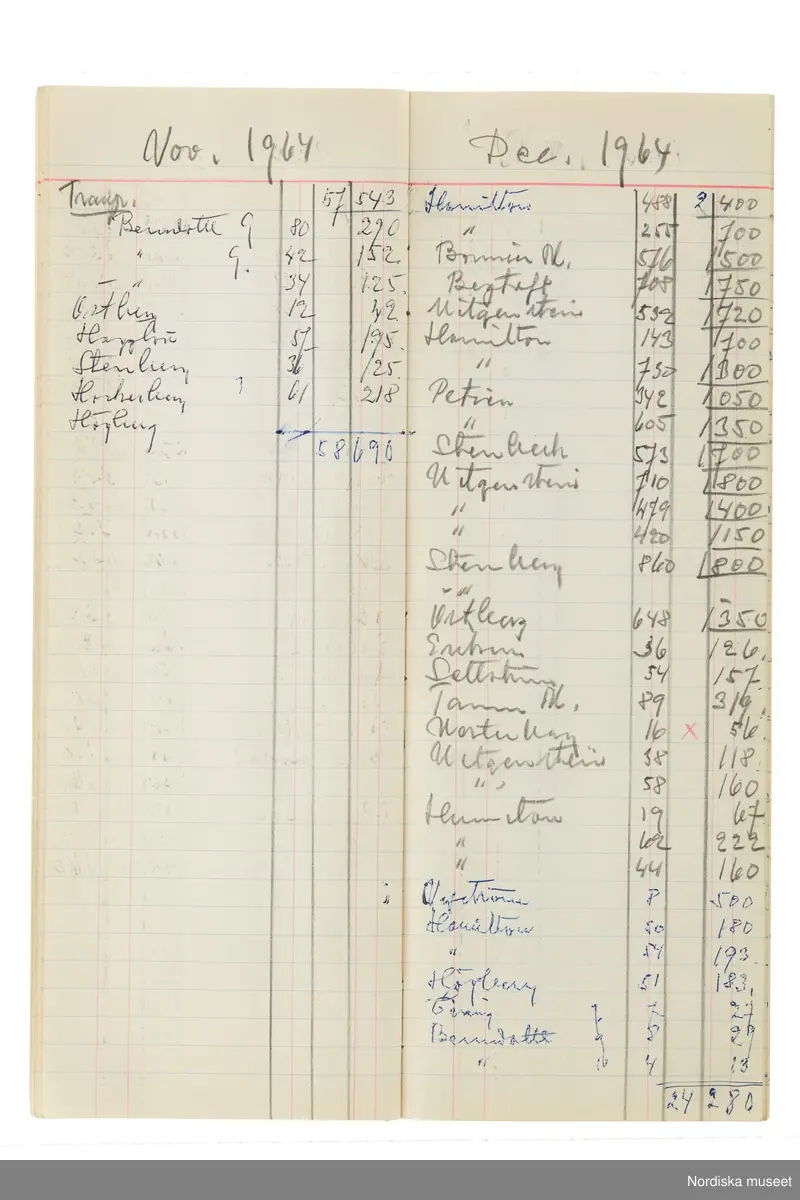 Nov. 1964
Transp. 57 543
Bernadotte G 80 290
" G. 42 152.
" 34 125.
Östberg 12 42.
57 195.
Stenberg 36 125.
61 218
Högberg
58 690
Dec. 1964
Hamilton 488 2 400
" 255 700
Bonnier M. 576 1500
708 1750
Witgenstein 539 1720
Hamilton 143 700
" 730 1300
Petrén 342 1050
" 605 1350
Stenbeck 573 1700
Witgenstein 710 1800
" 479 1400
" 420 1150
Stenberg 860 1800
"
Östberg 648 1350
36 126.
54 157
Tamm M. 89 319.
16 x 56.
Witgenstein 38 118.
" 58 160
Hamilton 19 67
" 62 222
" 44 160
8 500
Hamilton 50 180
" 54 193.
Högberg 51 183.
7 27
Bernadotte g 8 29
" 4 13
24 280
Nordiska museet